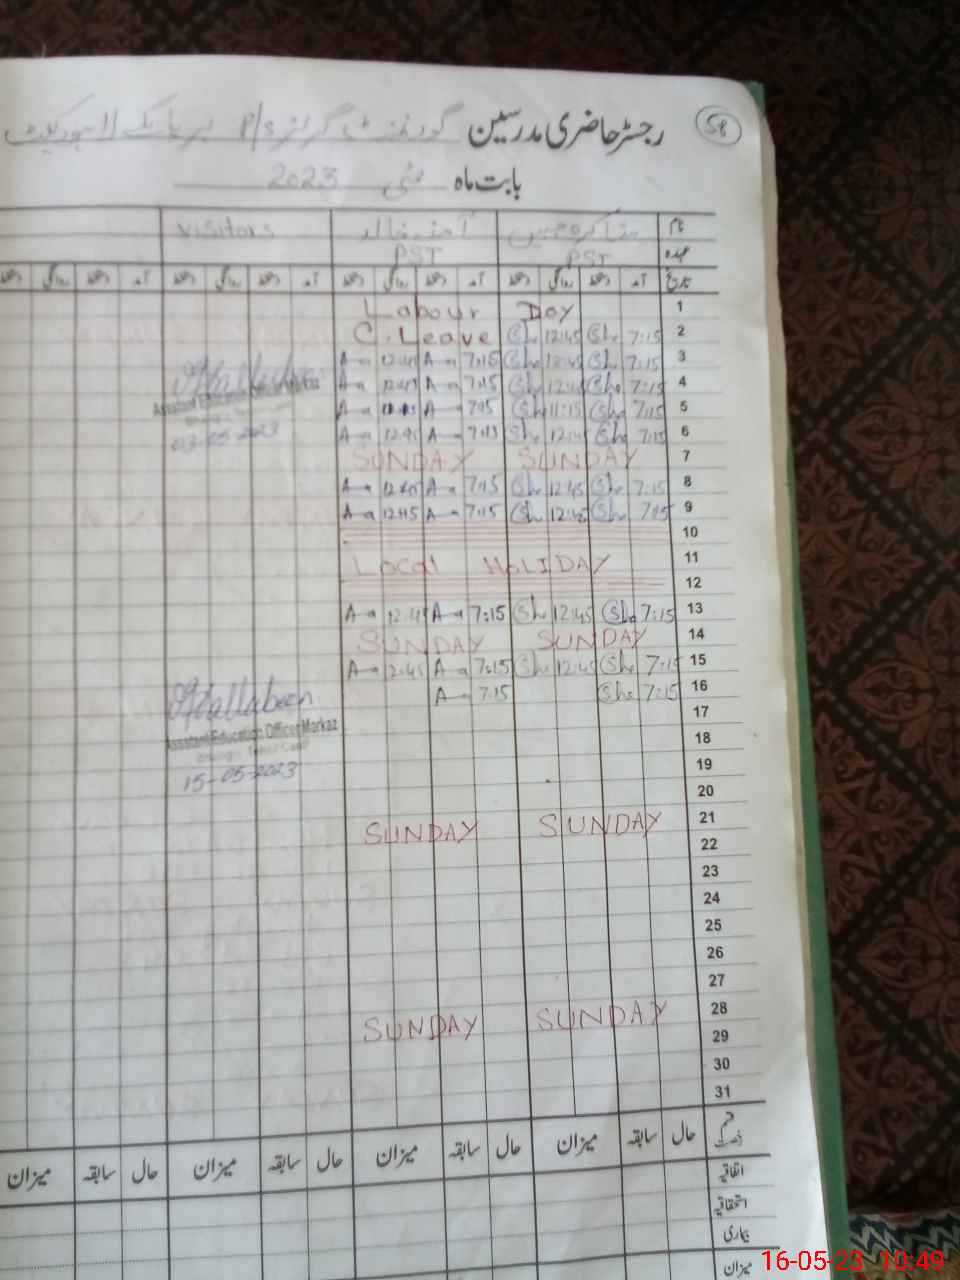 58
رجسٹر حاضری مدرسین گورنمنٹ گرلز P/S
بابت ماہ مئی 2023
نام visitors
عہدہ PST PST
تاریخ آمد روانگی آمد روانگی آمد روانگی
1 Labour Day
2 7:15 She 12:45 She C. Leave
3 7:15 She 12:45 She 7:15 A 12:45 A
4 7:15 She 12:45 She 7:15 A 12:45 A
5 7:15 She 11:15 She 7:15 A A
6 7:15 She 12:45 She 7:15 A 12:45 A
7 SUNDAY SUNDAY
8 7:15 She 12:45 She 7:15 A 12:45 A
9 7:15 She 12:45 She 7:15 A 12:45 A
10
11 Local HoLIDAY
12
13 7:15 She 12:45 She 7:15 A 12:45 A
14 SUNDAY SUNDAY
15 7:15 She 12:45 She 7:15 A 12:45 A
16 7:15 She 7:15 A
17
18
19
20
21 SUNDAY SUNDAY
22
23
24
25
26
27
28 SUNDAY SUNDAY
29
30
31
Assistant Education Officer Markaz
03-05-2023
Assistant Education Officer Markaz
15-05-2023
حال سابقہ میزان حال سابقہ میزان حال سابقہ میزان حال سابقہ میزان
اتفاقیہ
استحقاقیہ
بیماری
میزان
16-05-23 10:49